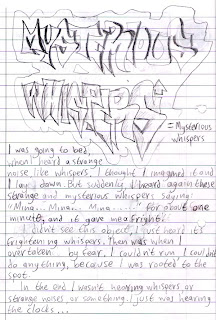 MYSTERIOUS
WHISPERS
= Mysterious
whispers
I was going to bed,
when I heard a strange
noise like whispers. I thought I imagined it and
I lay down. But suddenly, I heard again these
strange and mysterious whispers saying:
"Mina... Mina... Mina...." for about one
minute, and it gave me a fright!
I didn't see this object, I just heard it's
frightening whispers. Then was when I
overtaken by fear. I couldn't run, I couldn't
do anything, because I was rooted to the
spot.
In the end I wasn't hearing whispers or
strange noises or something. I just was hearing
the clocks...